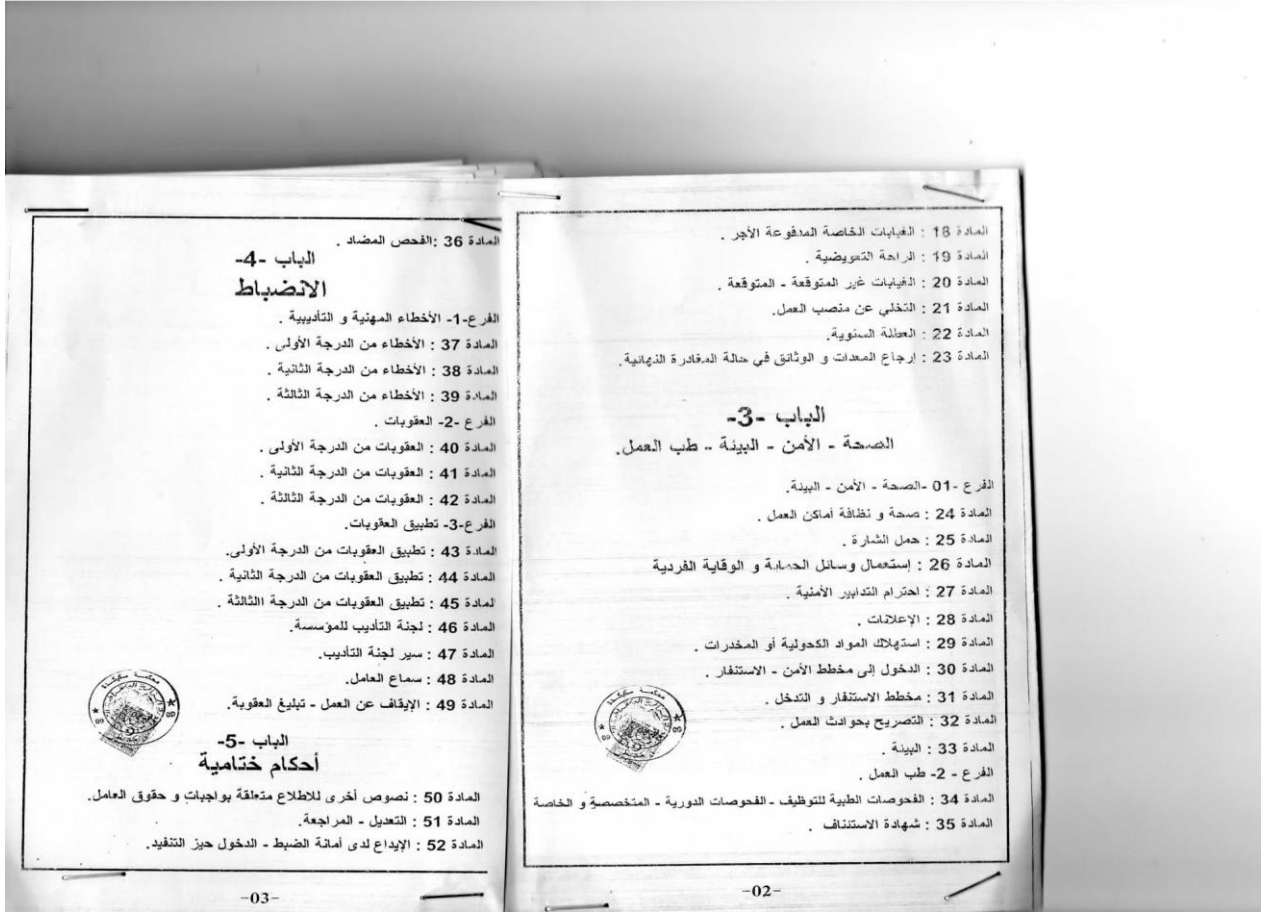 المادة 18 : الغيابات الخاصة المدفوعة الأجر .
المادة 19 : الراحة التعويضية .
المادة 20 : الغيابات غير المتوقعة - المتوقعة .
المادة 21 : التخلي عن منصب العمل.
المادة 22 : العطلة السنوية.
المادة 23 : إرجاع المعدات و الوثائق في حالة المغادرة النهائية.
الباب -3-
الصحة - الأمن - البيئة - طب العمل.
الفرع -01 -الصحة - الأمن - البيئة.
المادة 24 : صحة و نظافة أماكن العمل .
المادة 25 : حمل الشارة .
المادة 26 : إستعمال وسائل الحماية و الوقاية الفردية
المادة 27 : احترام التدابير الأمنية .
المادة 28 : الإعلانات .
المادة 29 : استهلاك المواد الكحولية أو المخدرات .
المادة 30 : الدخول إلى مخطط الأمن - الاستنفار .
المادة 31 : مخطط الاستنفار و التدخل .
المادة 32 : التصريح بحوادث العمل .
المادة 33 : البيئة .
الفرع - 2- طب العمل .
المادة 34 : الفحوصات الطبية للتوظيف -الفحوصات الدورية - المتخصصة و الخاصة
المادة 35 : شهادة الاستئناف .
-02-
المادة 36 :الفحص المضاد .
الباب -4-
الانضباط
الفرع-1- الأخطاء المهنية و التأديبية .
المادة 37 : الأخطاء من الدرجة الأولى .
المادة 38 : الأخطاء من الدرجة الثانية .
المادة 39 : الأخطاء من الدرجة الثالثة .
الفرع -2- العقوبات .
المادة 40 : العقوبات من الدرجة الأولى .
المادة 41 : العقوبات من الدرجة الثانية .
المادة 42 : العقوبات من الدرجة الثالثة .
الفرع-3- تطبيق العقوبات.
المادة 43 : تطبيق العقوبات من الدرجة الأولى.
المادة 44 : تطبيق العقوبات من الدرجة الثانية .
لمادة 45 : تطبيق العقوبات من الدرجة االثالثة .
المادة 46 : لجنة التأديب للمؤسسة.
المادة 47 : سير لجنة التأديب.
المادة 48 : سماع العامل.
المادة 49 : الإيقاف عن العمل - تبليغ العقوبة.
الباب -5-
أحكام ختامية
المادة 50 : نصوص أخرى للاطلاع متعلقة بواجبات و حقوق العامل.
المادة 51 : التعديل - المراجعة.
المادة 52 : الإيداع لدى أمانة الضبط - الدخول حيز التنفيد.
-03-